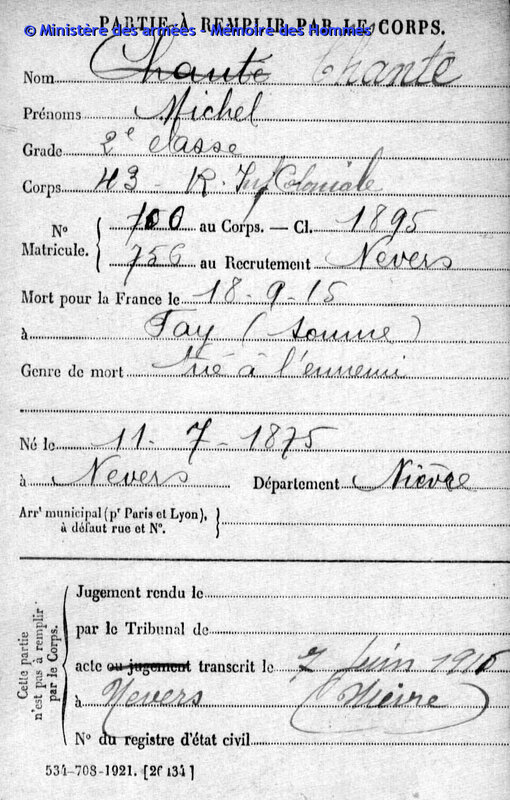 PARTIE À REMPLIR PAR LE CORPS.
© Ministère des armées - Mémoire des Hommes
Nom Chanté Chanté
Prénoms Michel
Grade 2e classe
Corps 43 - R. Inf Coloniale
No Matricule. 700 au Corps. — Cl. 1895
756 au Recrutement Nevers
Mort pour la France le 18-9-15
à Fay (Somme)
Genre de mort tué à l'ennemi
Né le 11-7-1875
à Nevers Département Nièvre
Arrt municipal (pr Paris et Lyon),
à défaut rue et No.
Cette partie
n'est pas à remplir
par le Corps.
Jugement rendu le
par le Tribunal de
acte ou jugement transcrit le 7 Juin
à Nevers (Nièvre)
No du registre d'état civil
534-708-1921. [26434]